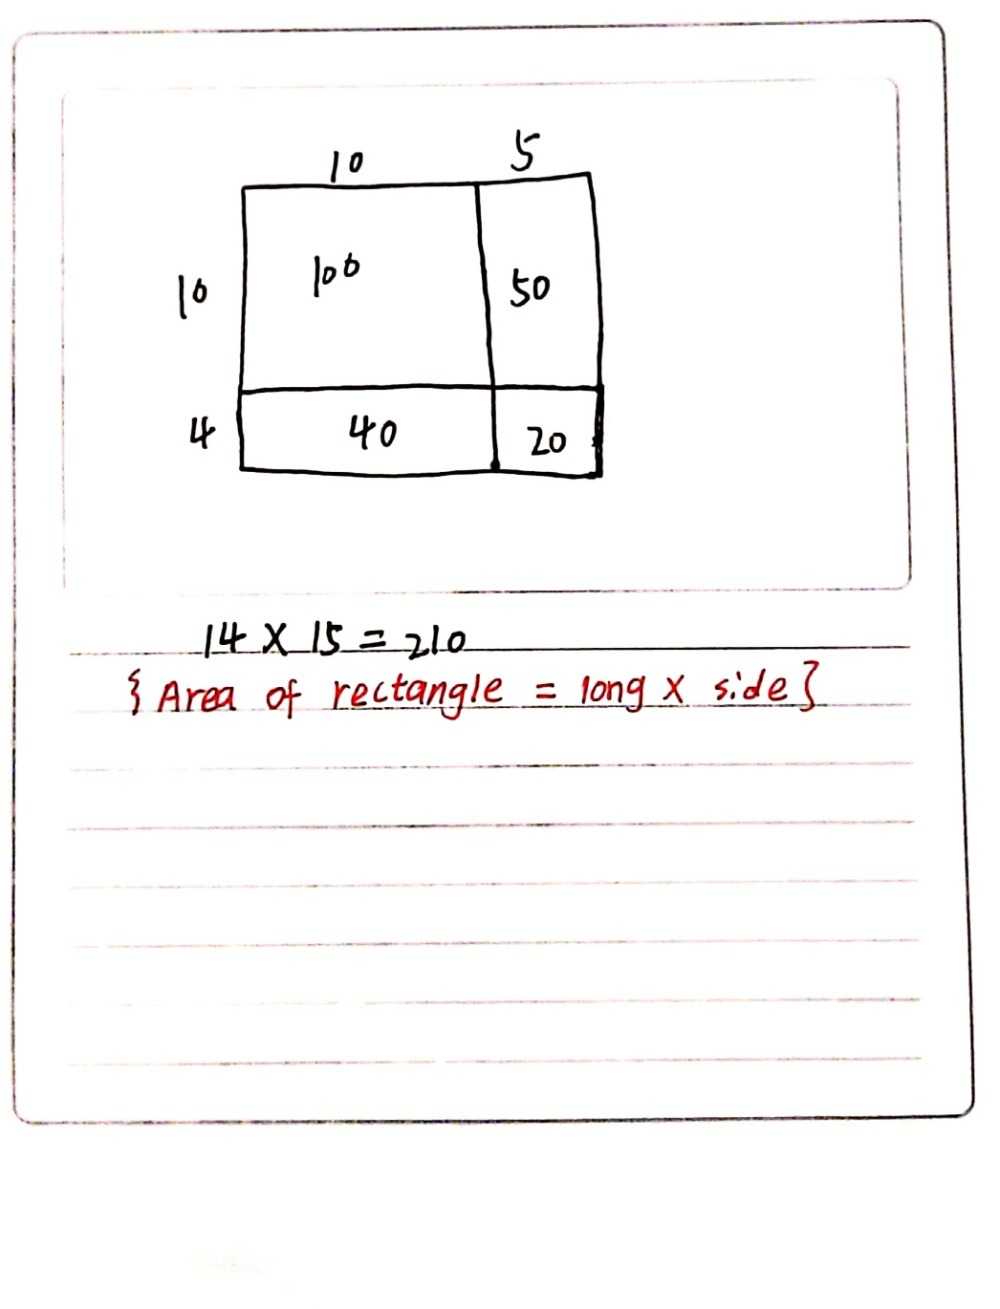 10 5
10 100 50
4 40 20
14 X 15 = 210
{ Area of rectangle = long x side }